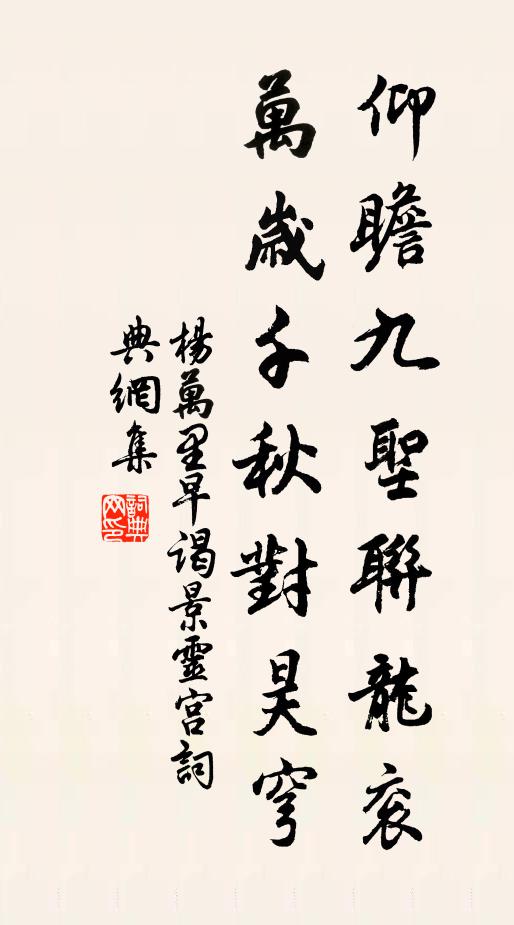 仰瞻九聖聯龍衮
萬歲千秋對昊穹
楊萬里早謁景靈宮詞
典網集
詞典網印